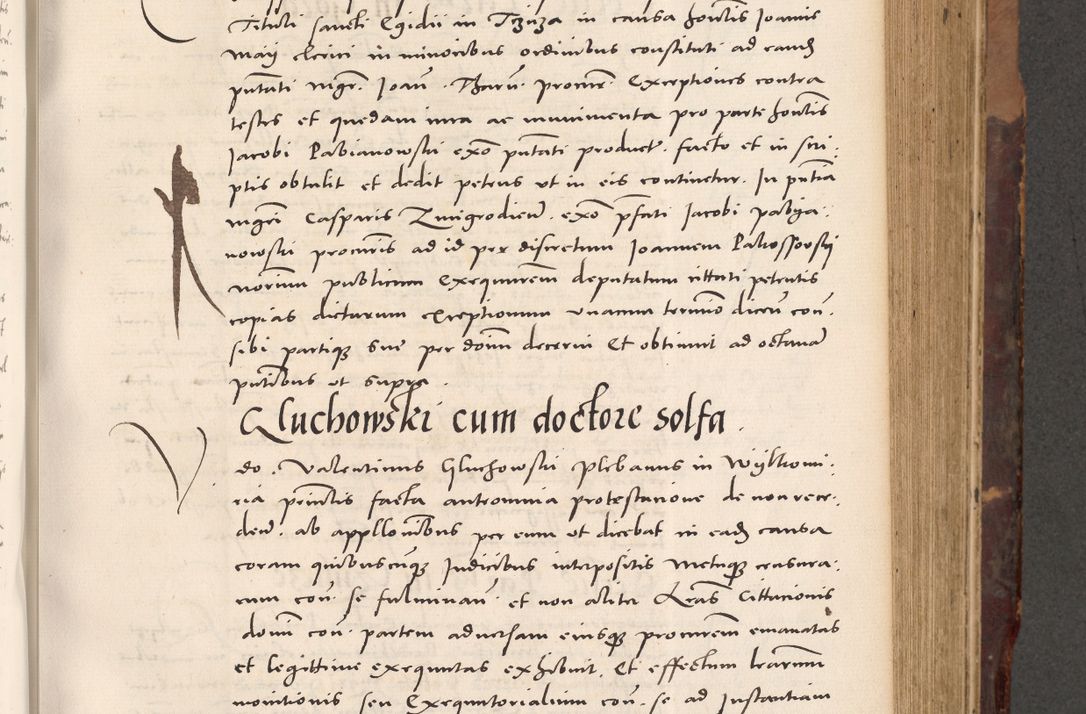 Tituli sancti Egidii in Tizinza in causa honestis Joannis
maij clerici in minoribus ordinibus constituti ad eandem
putati mgri. Joan. Tharn. procur. Exceptiones contra
testes et quedam iura ac munimenta pro parte honestis
Jacobi Pabianowski exo putati product. facto et in scri:
ptis obtulit et dedit petens ut in eis continetur. In pntia
mgri Casparis Zmigrodien. exo pfati Jacobi pabya:
nowski procuris ad id per discretum Joannem Pakossowsky
norium publicum Exequurem deputatum cittati petentis
copias dictarum exceptionum unacum termio dicen con.
sibi partique sue per donum decerni Et obtinuit ad octavam
putibus ut supra.
Gluchowski cum doctore solfa.
do. Valentinus Gluchowski plebanus in Wylkomi:
ria printis facta antromnia protestacione de non rece:
den. ab appllonibus per eum ut dicebat in eadem causa
coram quibuscunque Judicibus interpositis metuque censura:
rum con. se fulminan. et non aliter Lras Cittationis
domi con. partem adversam eiusque procurem emanatas
et legittime exequutas exhibuit. Et effectum lrarum
monitionis seu Exequutorialium con. se ad Instantiam